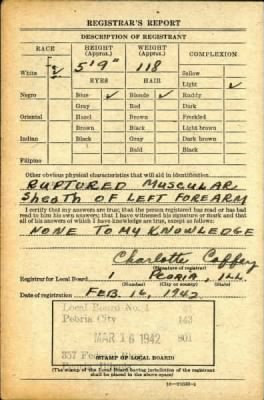 REGISTRAR'S REPORT
DESCRIPTION OF REGISTRANT
RACE HEIGHT (Approx.) WEIGHT (Approx.) COMPLEXION
White ✓ 5'9" 118 Sallow
EYES HAIR Light ✓
Negro Blue ✓ Blonde ✓ Ruddy
Gray Red Dark
Oriental Hazel Brown Freckled
Brown Black Light brown
Indian Black Gray Dark brown
Bald Black
Filipino
Other obvious physical characteristics that will aid in identification
RUPTURED MUSCULAR
Sheath OF LEFT FOREARM
I certify that my answers are true; that the person registered has read or has had
read to him his own answers; that I have witnessed his signature or mark and that
all of his answers of which I have knowledge are true, except as follows:
NONE TO MY KNOWLEDGE
Charlotte Caffery
(Signature of registrar)
Registrar for Local Board 1 PEORIA, ILL.
(Number) (City or county) (State)
Date of registration FEB. 16, 1942
Local Board No. 1
Peoria City 143
MAR 16 1942 001
357
(STAMP OF LOCAL BOARD)
(The stamp of the Local Board having jurisdiction of the registrant
shall be placed in the above space)